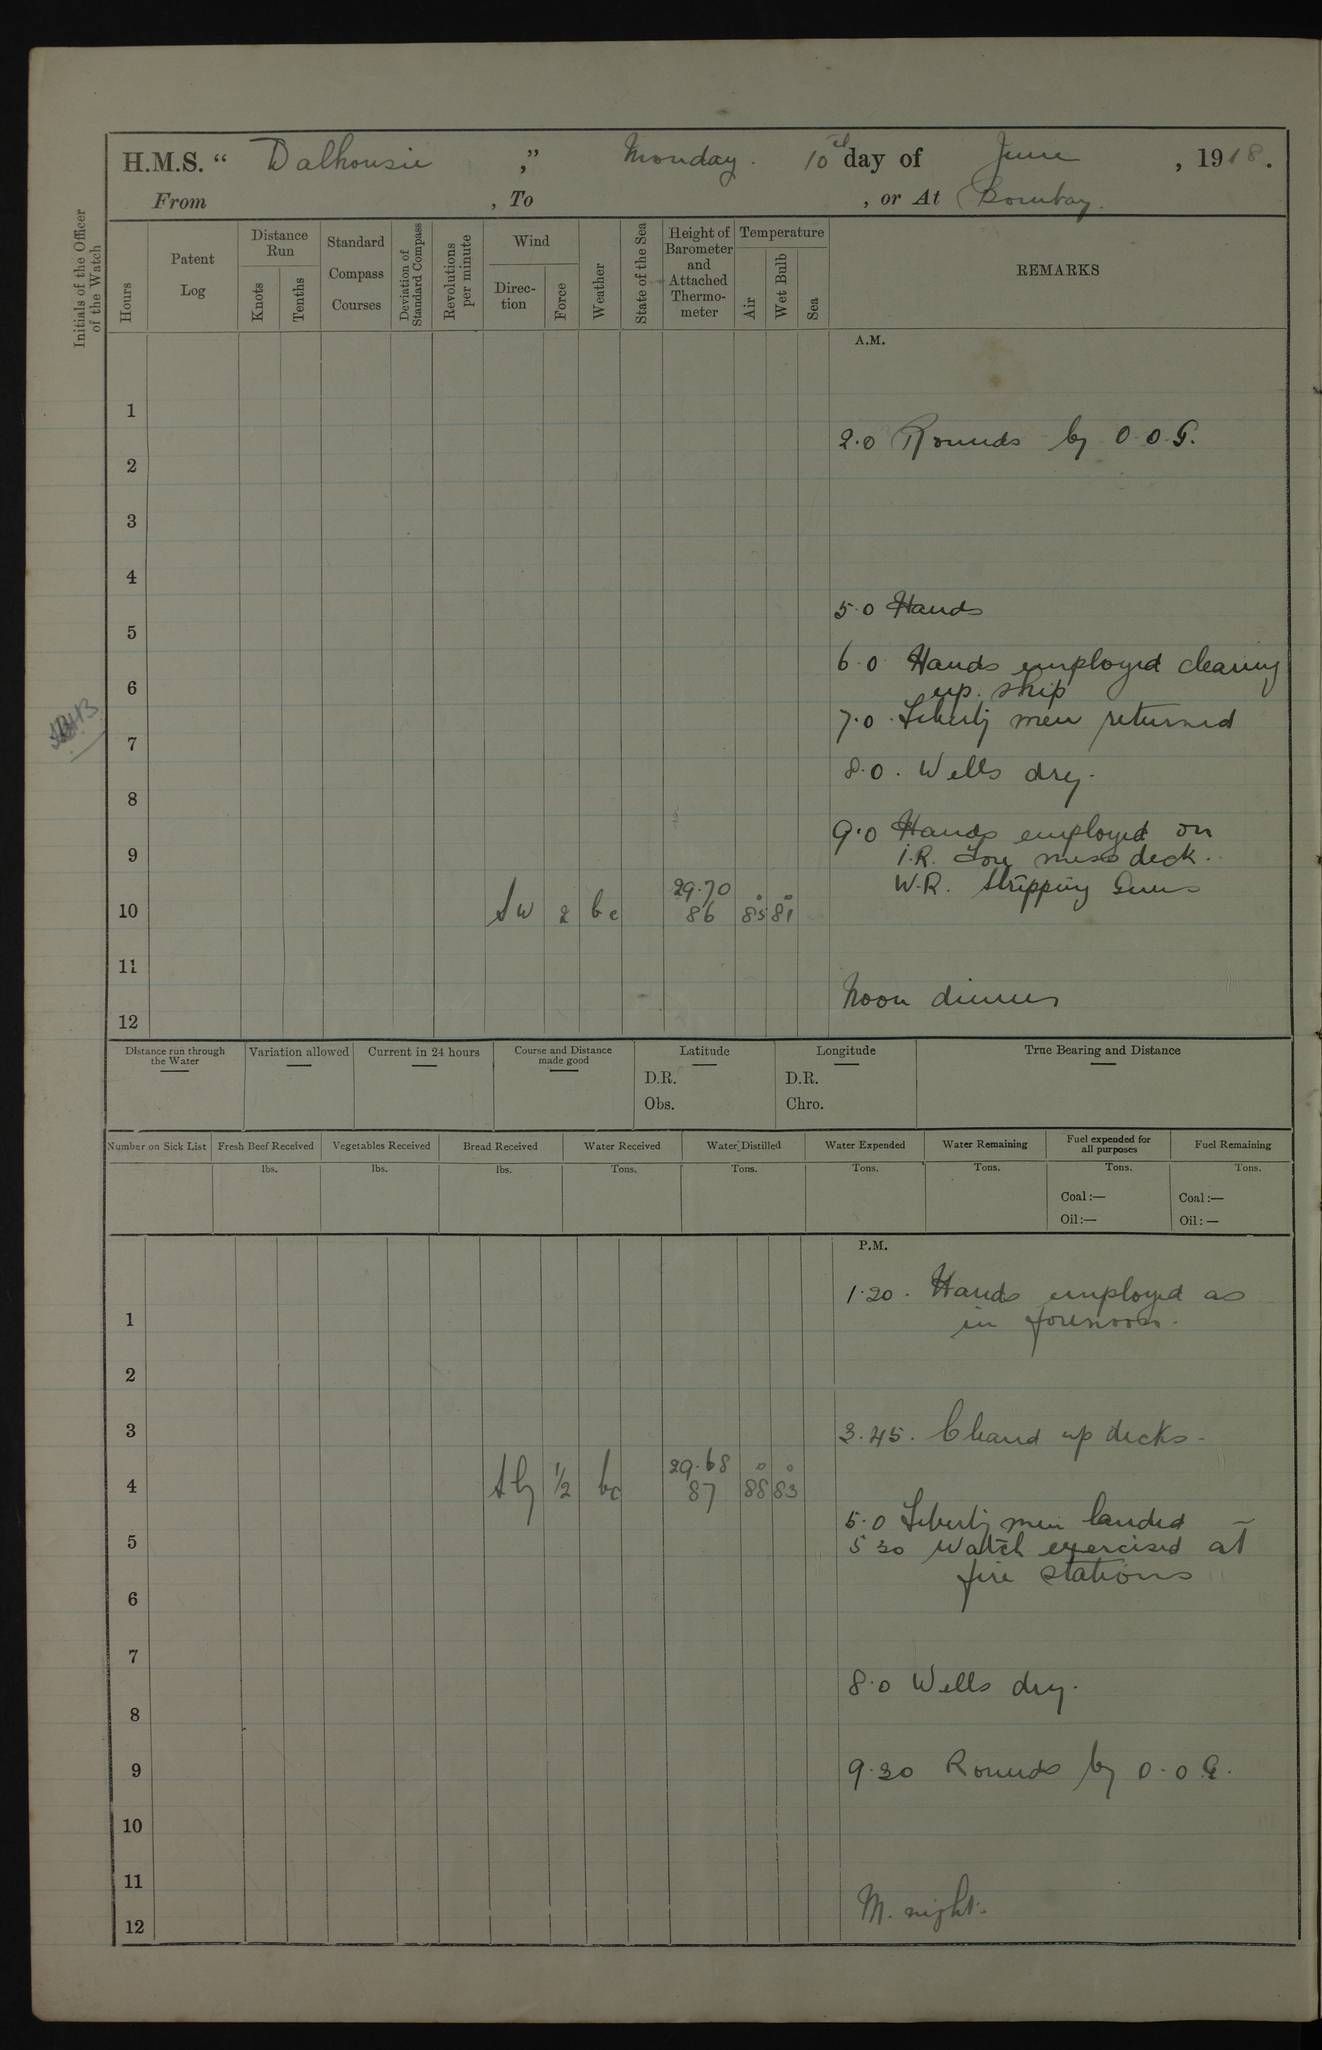 H.M.S. “ Dalhousie ,” Monday. 10th day of June , 1918.
From , To , or At Bombay.
Initials of the Officer of the Watch
Hours
Patent Log
Distance Run
Knots
Tenths
Standard Compass Courses
Deviation of Standard Compass
Revolutions per minute
Wind
Direc-tion
Force
Weather
State of the Sea
Height of Barometer and Attached Thermo-meter
Temperature
Air
Wet Bulb
Sea
REMARKS
A.M.
1
2.0 Rounds by O.O.G.
2
3
4
5.0 Hands
5
6.0 Hands employed cleaning
6 up ship
7.0. Liberty men returned
7
8.0. Wells dry.
8
9.0 Hands employed on
9 I.R. Fore mess deck.
W.R. Stripping Guns
10 SW 2 bc 29.70 86 85° 81°
11
Noon dinner
12
Distance run through the Water
Variation allowed
Current in 24 hours
Course and Distance made good
Latitude
D.R.
Obs.
Longitude
D.R.
Chro.
True Bearing and Distance
Number on Sick List
Fresh Beef Received
lbs.
Vegetables Received
lbs.
Bread Received
lbs.
Water Received
Tons.
Water Distilled
Tons.
Water Expended
Tons.
Water Remaining
Tons.
Fuel expended for all purposes
Tons.
Coal:—
Oil:—
Fuel Remaining
Tons.
Coal:—
Oil:—
P.M.
1.20. Hands employed as
1 in forenoon.
2
3
3.45. Cleaned up decks.
4 Sly ½ bc 29.68 87 88° 83°
5.0 Liberty men landed
5 5 30 Watch exercised at
fire stations
6
7
8.0 Wells dry.
8
9
9.30 Rounds by O.O.G.
10
11
M. night.
12